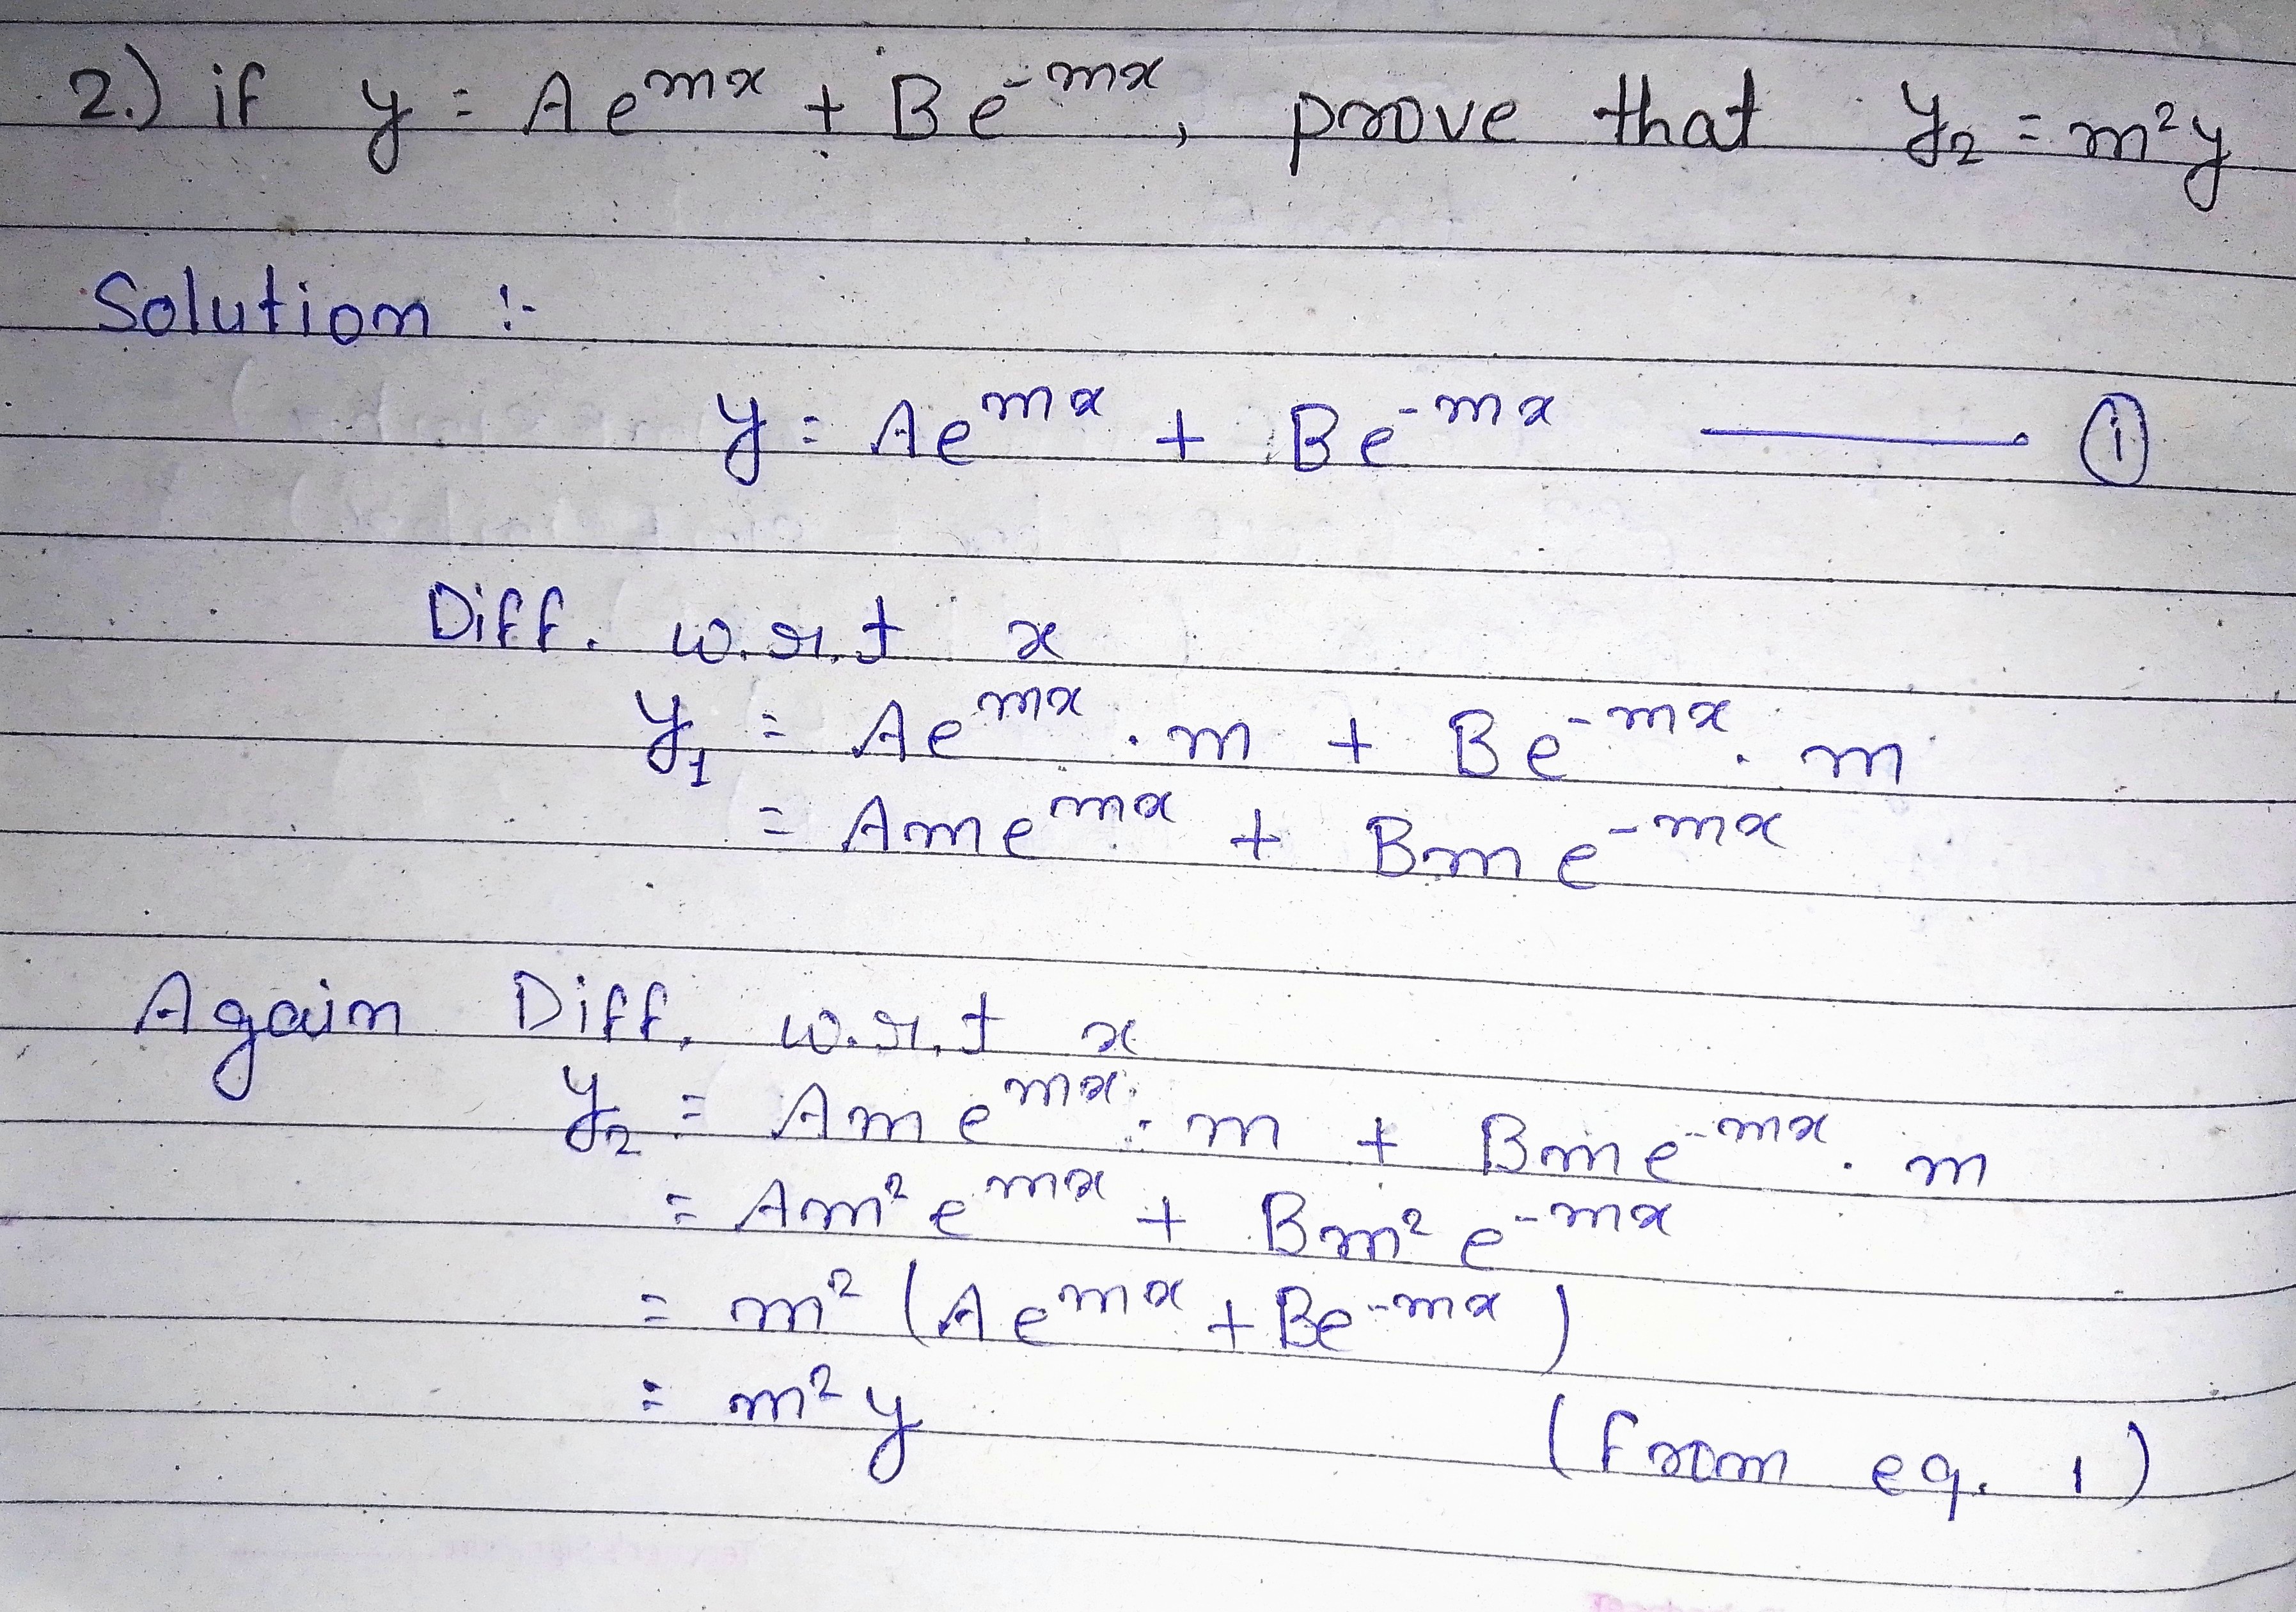 2.) if y = Ae^{mx} + Be^{-mx}, prove that y₂ = m²y
Solution :-
y = Ae^{mx} + Be^{-mx} ——— ①
Diff. w.r.t x
y₁ = Ae^{mx} . m + Be^{-mx} . m
= Ame^{mx} + Bme^{-mx}
Again Diff. w.r.t x
y₂ = Ame^{mx} . m + Bme^{-mx} . m
= Am²e^{mx} + Bm²e^{-mx}
= m² (Ae^{mx} + Be^{-mx})
= m²y (from eq. 1)